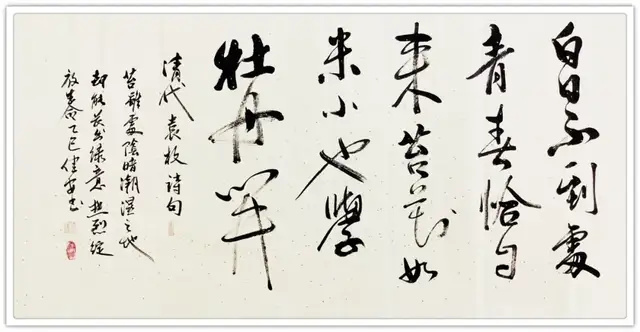 白日不到處
青春恰自
來苔花如
米小也學
牡丹開
清代袁枚詩句
苔雖處陰暗潮濕之地
却能長出綠意熱烈綻
放生命乙巳書